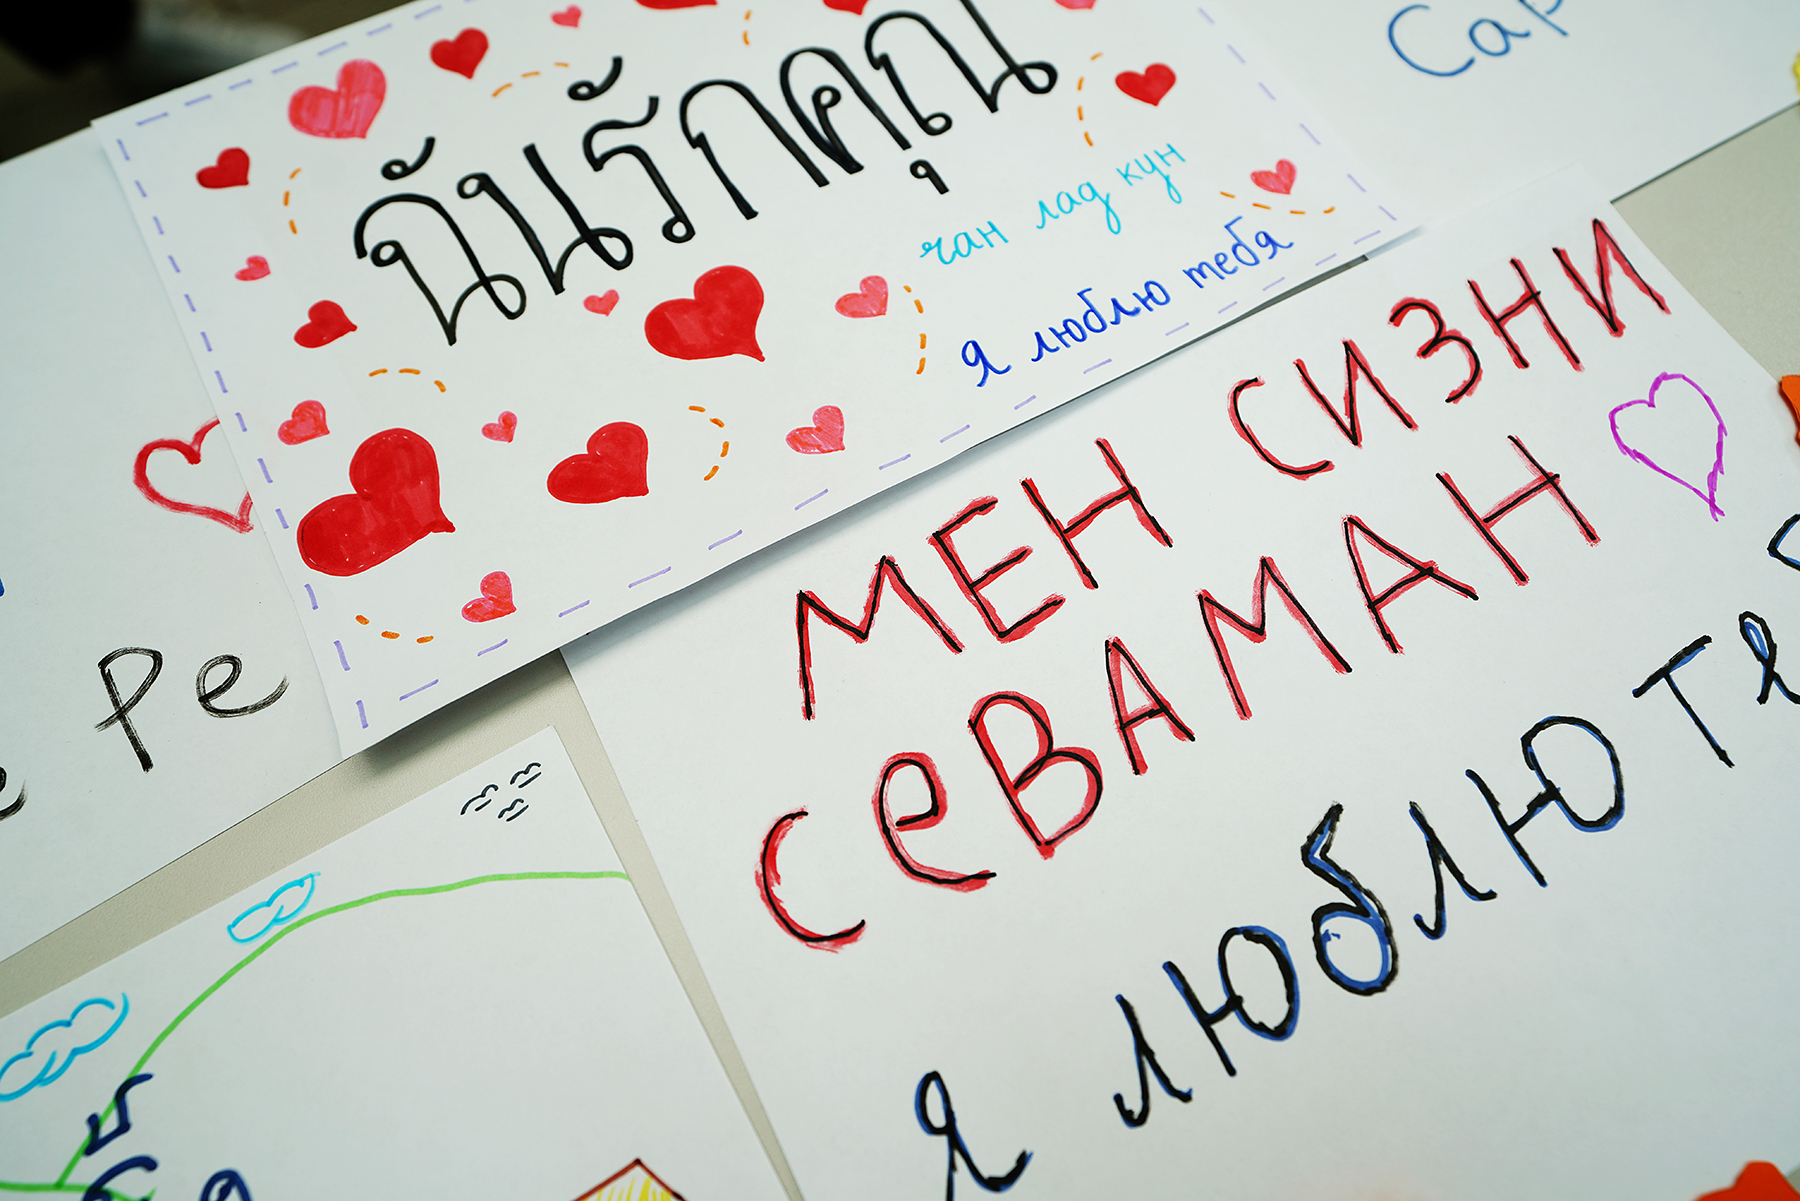 ฉันรักคุณ
чан лад кун
я люблю тебя
Сар
МЕН СИЗНИ
СеВАМАН
я люблю те
Ре